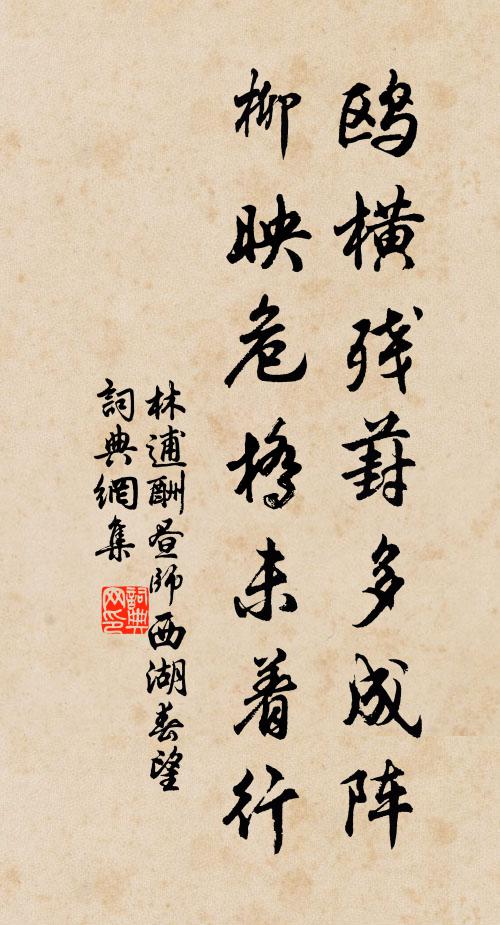 鸥横残葑多成阵
柳映危桥未着行
林逋酬昼师西湖春望
詞典網集
詞典
网印